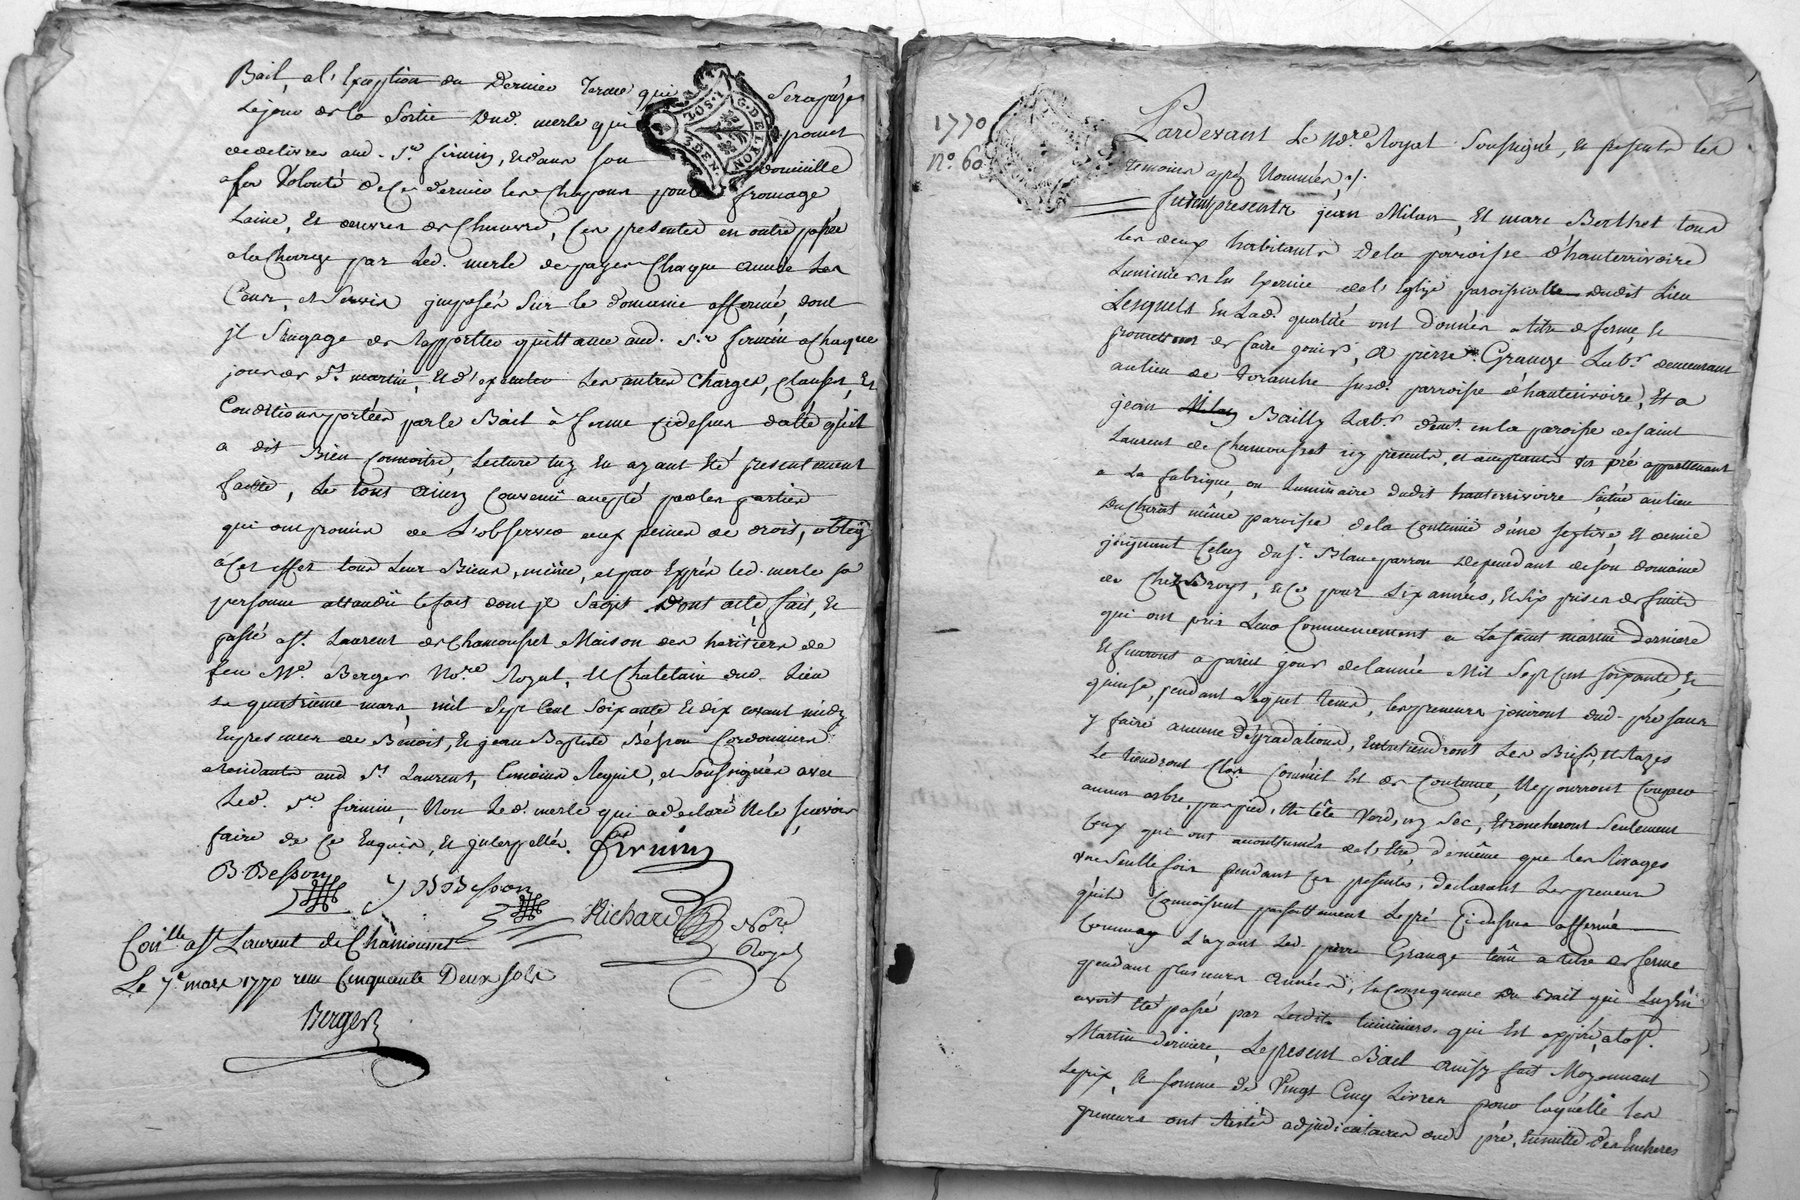 Bail, a l'Exception du Dernier Terme qui Serapayé
Lejour de la Sortie Dud. merle qui promet
dedelivrer aud. Sr. firmin, Etdans son Domicille
a sa Volonté dece dernier les Chapons poule fromage
Laine, Et oeuvres de Chanvre, Ces presentes en outre passée
ala Charge par Led. merle depayer Chaque année Les
Cens, et Servis jmposés Sur le domaine affermé, dont
jl S'Engage de Rapporter quittance aud. Sr. firmin a Chaque
jour de St. martin, Et d'executer Les autres Charges, Clauses, Et
Conditions portées parle Bail à ferme Cidessus datté qu'il
a dit Bien Connoitre, Lecture luy En ayant Eté presentement
faitte, Le tout ainsy Convenü accepté parles parties
qui ont promis de L'observer aux peines de droit, oblig
à Cet effet tous Leur Biens, même, et par Exprès led. merle sa
personne attandü lefait dont jl Sagit Dont acte, fait, Et
passé a St. Laurent de Chamousset Maison des heritiers de
feu Me. Berger Nore. Royal, Et Chatelain dud. Lieu
Le quatrieme mars, mil Sept Cent Soixante Et dix avant midy
En presences de Benoit, Et jean Baptiste Besson Cordonniers
residants aud St. Laurent, temoins Requis, et Soussignés avec
Led. Sr. firmin, Non Led. merle qui a declaré Ne le Sçavoir
faire de Ce Enquis, Et jnterpellés. firmin
B. Besson J B Besson
Richard Nore.
Royal
Conlle a St. Laurent de Chamousset
Le 7e. mars 1770 reçu Cinquante Deux sols
Berger
G. DE LYON
2. SOLS
1770
No. 60
Pardevant Le Nore. Royal Soussigné, et presents les
temoins après Nommés ./.
furent presents jean Milan, Et marc Berthet tous
les deux habitants De la paroisse d'hauterrivoire
Luminiers En Exercice de l'Eglize paroissialle dudit Lieu
Lesquels En Lad. qualité ont donnés a titre de ferme, et
promettent de faire jouir, a pierre Grange Labr. demeurant
au lieu de Susd. parroisse d'hauterivoire, Et a
jean Milan Bailly Labr. demt. en la paroisse de Saint
Laurent de Chamousset icy presents, et acceptants un pré appartenant
a La fabrique, ou Luminaire dudit hauterrivoire Scitué au lieu
même paroisse de la Contenüe d'une Septive, Et demie
joignant Celuy du Sr. Dependant de son domaine
de Chez Broys, Et Ce pour Six années, Et Six prises de fruits
qui ont pris Leur Commencement a La Saint martin Derniere
Et finiront a pareil jour de l'année Mil Sept Cent Soixante, Et
quinse, pendant Lequel tems, les preneurs jouiront dud. pré Sans
y faire aucune dégradations, Entretiendront Les Biefs, Et Razes
Le tiendront Clos Comm'il Est de Coutume, Ne pourront Couper
aucun arbre, par pied, Ni tête Verd, ny Sec, Ebrancheront Seulement
Ceux qui ont accoutumés de l'Etre, de même que les Rivages
une Seulle fois pendant Ces presentes, declarant Les preneurs
qu'ils Connoissent parfaittement Le pré Cidessus affermé
Comme L'ayant Led. pierre Grange tenü a titre de ferme
pendant plusieurs Années, En Consequence Du Bail qui
avoit Eté passé par Lesdits luminiers. qui Est expiré, a la St.
Martin Derniere, Le present Bail ainsy fait Moyennant
Le prix, Et Somme de Vingt Cinq Livres pour laquelle les
preneurs ont Restés adjudicataires dud pré, En suitte des Encheres